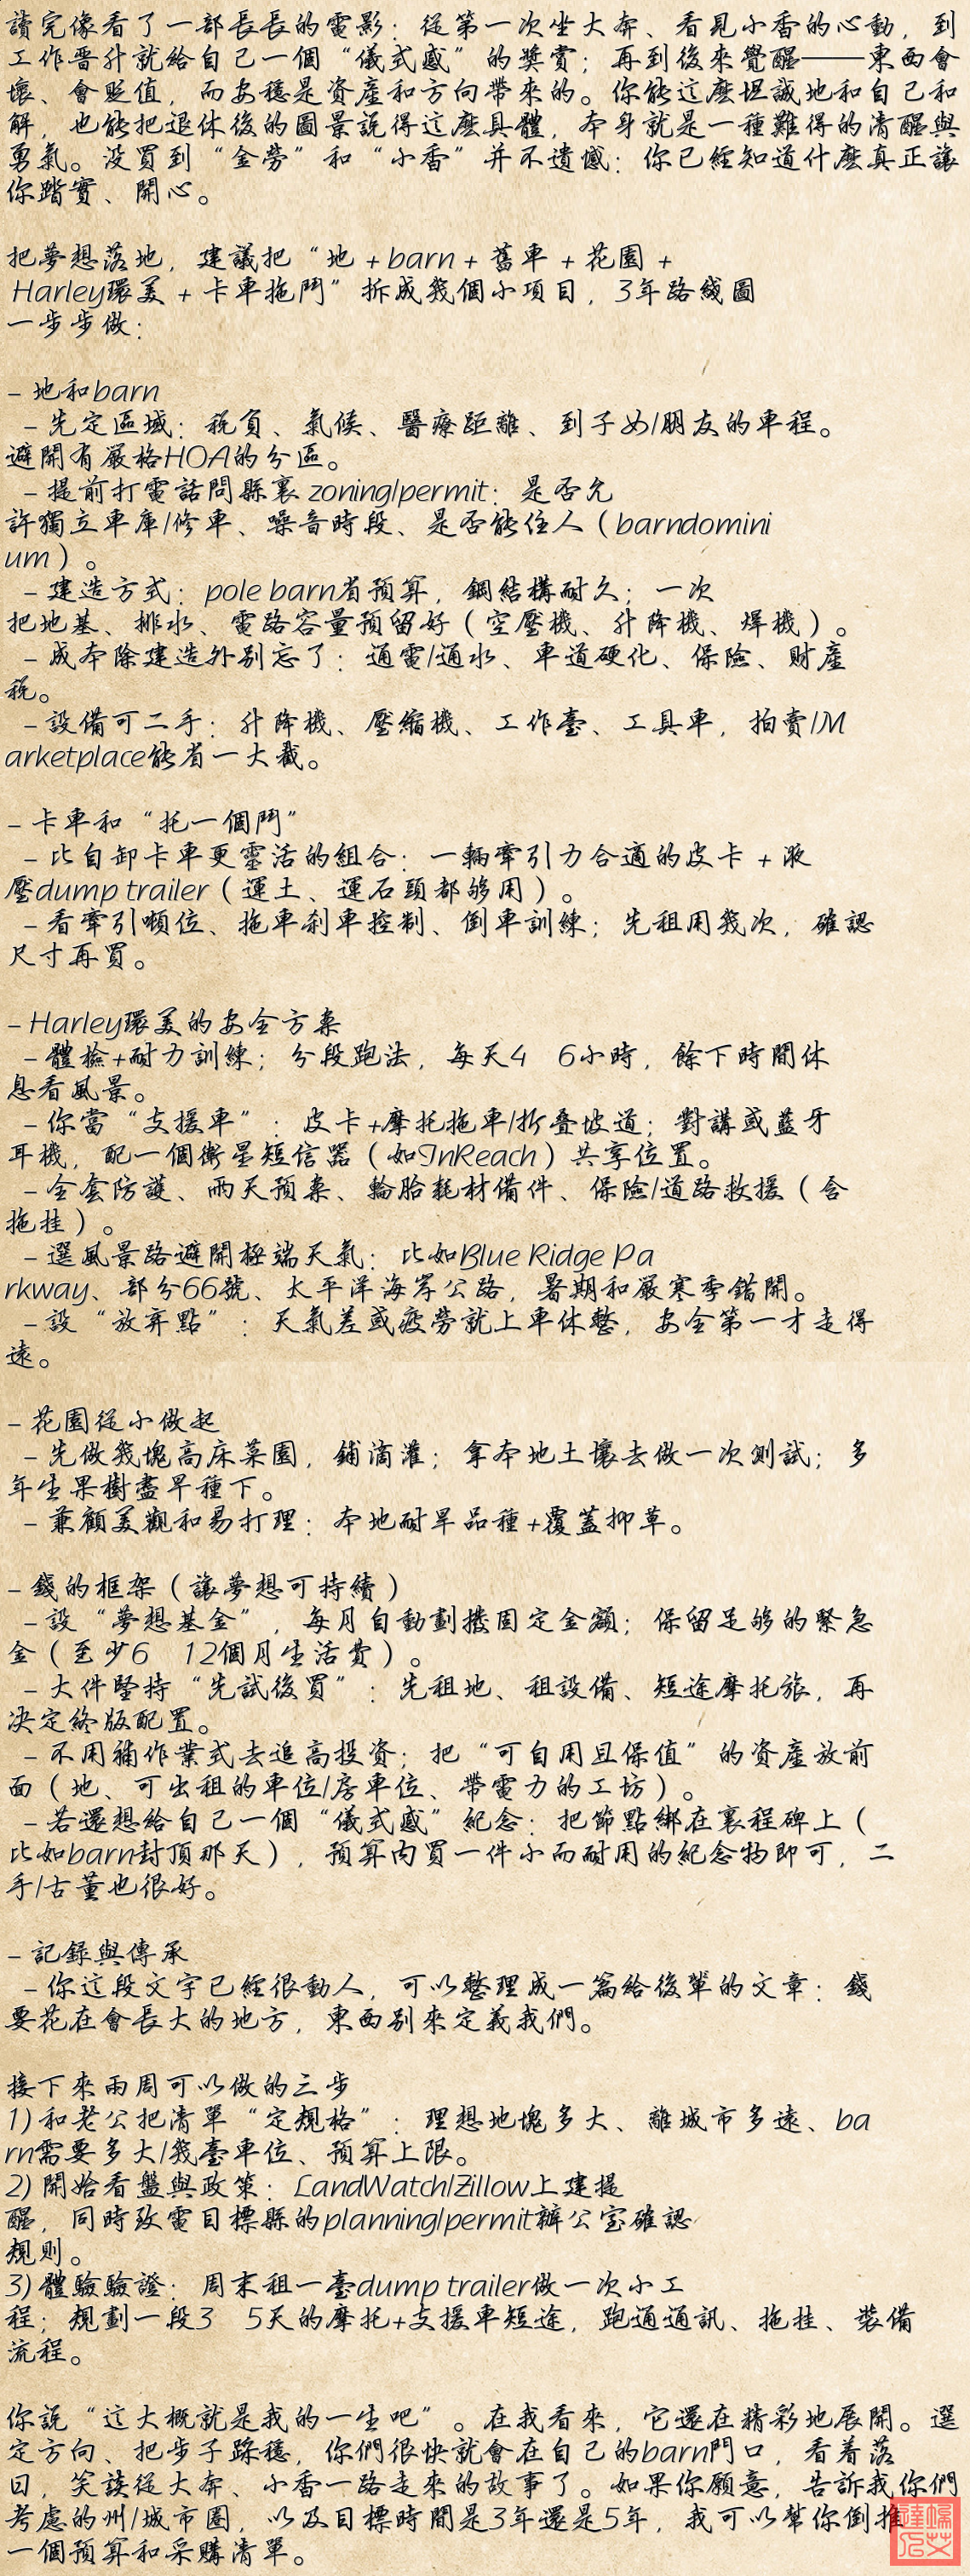 讀完像看了一部長長的電影：從第一次坐大奔、看見小香的心動，到
工作晋升就給自己一個“儀式感”的獎賞；再到後來覺醒——東西會
壞、會貶值，而安穩是資產和方向帶來的。你能這麽坦誠地和自己和
解，也能把退休後的圖景説得這麽具體，本身就是一種難得的清醒與
勇氣。没買到“金勞”和“小香”并不遺憾：你已經知道什麽真正讓
你踏實、開心。
把夢想落地，建議把“地 + barn + 舊車 + 花園 +
Harley環美 + 卡車拖鬥”拆成幾個小項目，3年路綫圖
一步步做：
– 地和barn
– 先定區域：税負、氣候、醫療距離、到子女/朋友的車程。
避開有嚴格HOA的分區。
– 提前打電話問縣裏 zoning/permit：是否允
許獨立車庫/修車、噪音時段、是否能住人（barndomini
um）。
– 建造方式：pole barn省預算，鋼結構耐久；一次
把地基、排水、電路容量預留好（空壓機、升降機、焊機）。
– 成本除建造外别忘了：通電/通水、車道硬化、保險、財產
税。
– 設備可二手：升降機、壓縮機、工作臺、工具車，拍賣/M
arketplace能省一大截。
– 卡車和“托一個鬥”
– 比自卸卡車更靈活的組合：一輛牽引力合適的皮卡 + 液
壓dump trailer（運土、運石頭都够用）。
– 看牽引噸位、拖車刹車控制、倒車訓練；先租用幾次，確認
尺寸再買。
– Harley環美的安全方案
– 體檢+耐力訓練；分段跑法，每天4 6小時，餘下時間休
息看風景。
– 你當“支援車”：皮卡+摩托拖車/折叠坡道；對講或藍牙
耳機，配一個衛星短信器（如InReach）共享位置。
– 全套防護、雨天預案、輪胎耗材備件、保險/道路救援（含
拖挂）。
– 選風景路避開極端天氣：比如Blue Ridge Pa
rkway、部分66號、太平洋海岸公路，暑期和嚴寒季錯開。
– 設“放弃點”：天氣差或疲勞就上車休整，安全第一才走得
遠。
– 花園從小做起
– 先做幾塊高床菜園，鋪滴灌；拿本地土壤去做一次測試；多
年生果樹盡早種下。
– 兼顧美觀和易打理：本地耐旱品種+覆蓋抑草。
– 錢的框架（讓夢想可持續）
– 設“夢想基金”，每月自動劃撥固定金額；保留足够的緊急
金（至少6 12個月生活費）。
– 大件堅持“先試後買”：先租地、租設備、短途摩托旅，再
决定終版配置。
– 不用補作業式去追高投資；把“可自用且保值”的資產放前
面（地、可出租的車位/房車位、帶電力的工坊）。
– 若還想給自己一個“儀式感”紀念：把節點綁在裏程碑上（
比如barn封頂那天），預算内買一件小而耐用的紀念物即可，二
手/古董也很好。
– 記録與傳承
– 你這段文字已經很動人，可以整理成一篇給後輩的文章：錢
要花在會長大的地方，東西别來定義我們。
接下來兩周可以做的三步
1) 和老公把清單“定規格”：理想地塊多大、離城市多遠、ba
rn需要多大/幾臺車位、預算上限。
2) 開始看盤與政策：LandWatch/Zillow上建提
醒，同時致電目標縣的planning/permit辦公室確認
規則。
3) 體驗驗證：周末租一臺dump trailer做一次小工
程；規劃一段3 5天的摩托+支援車短途，跑通通訊、拖挂、裝備
流程。
你説“這大概就是我的一生吧”。在我看來，它還在精彩地展開。選
定方向、把步子踩穩，你們很快就會在自己的barn門口，看着落
日，笑談從大奔、小香一路走來的故事了。如果你願意，告訴我你們
考慮的州/城市圈，以及目標時間是3年還是5年，我可以幫你倒推
一個預算和采購清單。